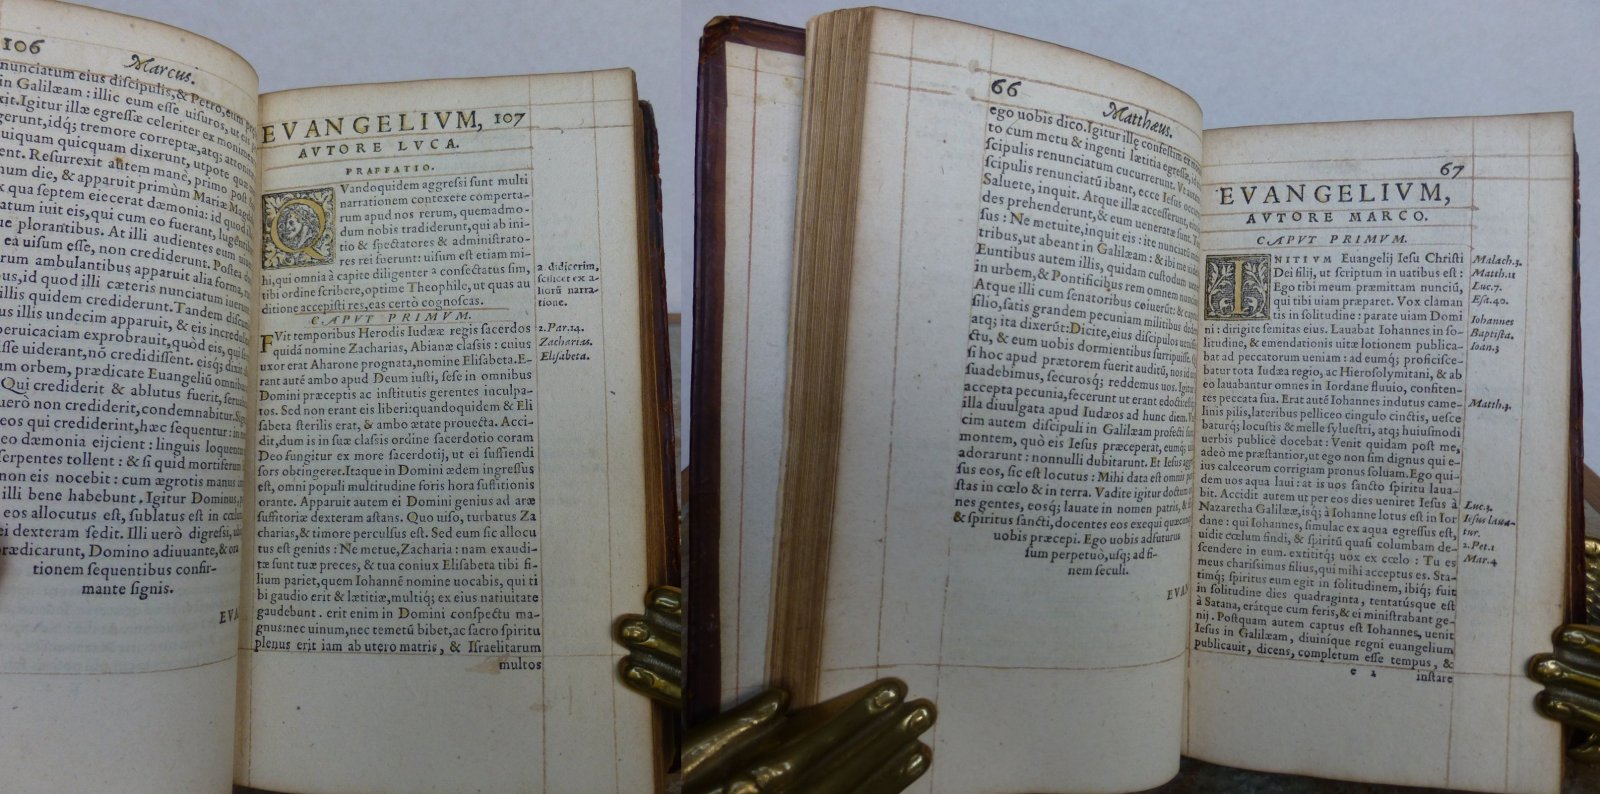 106
Marcus.
nunciatum eius discipulis, & Petro, eum
in Galilæam : illic eum esse uisuros, ut eis
xit. Igitur illæ egressæ celeriter ex
gerunt, idq; tremore correptæ, atq;
quiquam quicquam dixerunt, utpote quæ
ent. Resurrexit autem manè, primo post
num die, & apparuit primùm Mariæ
x qua septem eiecerat dæmonia: id quod illa
atum iuit eis, qui cum eo fuerant, lugentibus
ue plorantibus. At illi audientes eum
ea uisum esse, non crediderunt. Postea
rum ambulantibus apparuit alia forma,
us, id quod illi cæteris nunciatum iuerunt
illis quidem crediderunt. Tandem
us illis undecim apparuit, & eis
peruicaciam exprobrauit, quòd eis, qui
sse uiderant, nõ credidissent. eisq;
um orbem, prædicate Euangeliũ omnibus
Qui crediderit & ablutus fuerit,
uerò non crediderit, condemnabitur.
eos qui crediderint, hæc sequentur: in
eo dæmonia eijcient : linguis loquentur
serpentes tollent : & si quid mortiferum
non eis nocebit : cum ægrotis manus
illi bene habebunt. Igitur Dominus,
eos allocutus est, sublatus est in cœlum
ei dexteram sedit. Illi uerò digressi,
rædicarunt, Domino adiuuante, & ora
tionem sequentibus confir-
mante signis.
EVA
EVANGELIVM, 107
AVTORE LVCA.
PRAEFATIO.
QVandoquidem aggressi sunt multi
narrationem contexere comperta-
rum apud nos rerum, quemadmo-
dum nobis tradiderunt, qui ab ini-
tio & spectatores & administrato-
res rei fuerunt: uisum est etiam mi-
hi, qui omnia à capite diligenter a consectatus sim,
tibi ordine scribere, optime Theophile, ut quas au
ditione accepisti res, eas certò cognoscas.
a didicerim,
scilicet ex a-
liorũ narra-
tione.
CAPVT PRIMVM.
FVit temporibus Herodis Iudææ regis sacerdos
quidã nomine Zacharias, Abianæ classis : cuius
uxor erat Aharone prognata, nomine Elisabeta. E-
rant autẽ ambo apud Deum iusti, sese in omnibus
Domini præceptis ac institutis gerentes inculpa-
tos. Sed non erant eis liberi: quandoquidem & Eli
sabeta sterilis erat, & ambo ætate prouecta. Acci-
dit, dum is in suæ classis ordine sacerdotio coram
Deo fungitur ex more sacerdotij, ut ei suffiendi
sors obtingeret. Itaque in Domini ædem ingressus
est, omni populi multitudine foris hora suffitionis
orante. Apparuit autem ei Domini genius ad aræ
suffitoriæ dexteram astans. Quo uiso, turbatus Za
charias, & timore perculsus est. Sed eum sic allocu
tus est genius : Ne metue, Zacharia: nam exaudi-
tæ sunt tuæ preces, & tua coniux Elisabeta tibi fi-
lium pariet, quem Iohannẽ nomine uocabis, qui ti
bi gaudio erit & lætitiæ, multiq; ex eius natiuitate
gaudebunt. erit enim in Domini conspectu ma-
gnus: nec uinum, nec temetũ bibet, ac sacro spiritu
plenus erit iam ab utero matris, & Israelitarum
multos
2. Par. 14.
Zacharias.
Elisabeta.
66
Matthæus.
ego uobis dico. Igitur illę confestim ex
to cum metu & ingenti lætitia egressæ, id
scipulis renunciatum cucurrerunt. Vt autem
scipulis renunciatũ ibant, ecce Iesus
Saluete, inquit. Atque illæ accesserunt,
des prehenderunt, & eum ueneratæ sunt.
sus : Ne metuite, inquit eis : ite nunciatũ
tribus, ut abeant in Galilæam : & ibi me
Euntibus autem illis, quidam custodum
in urbem, & Pontificibus rem omnem
Atque illi cum senatoribus coierũt: &
silio, satis grandem pecuniam militibus
atq; ita dixerũt: Dicite, eius discipulos
ctu, & eum uobis dormientibus surripuisse.
si hoc apud prætorem fuerit auditũ, nos id
suadebimus, securosq; reddemus uos. Igitur
accepta pecunia, fecerunt ut erant edocti:
illa diuulgata apud Iudæos ad hunc diem.
cim autem discipuli in Galilæam profecti sunt
montem, quò eis Iesus præceperat, eumq;
adorarunt : nonnulli dubitarunt. Et Iesus
sus eos, sic est locutus : Mihi data est omnis
stas in cœlo & in terra. Vadite igitur doctum
nes gentes, eosq; lauate in nomen patris, &
& spiritus sancti, docentes eos exequi
uobis præcepi. Ego uobis adfuturus
sum perpetuò, usq; ad fi-
nem seculi.
EVAN
67
EVANGELIVM,
AVTORE MARCO.
CAPVT PRIMVM.
INITIVM Euangelij Iesu Christi
Dei filij, ut scriptum in uatibus est:
Ego tibi meum præmittam nunciũ,
qui tibi uiam præparet. Vox claman
tis in solitudine : parate uiam Domi
ni : dirigite semitas eius. Lauabat Iohannes in so-
litudine, & emendationis uitæ lotionem publica-
bat ad peccatorum ueniam : ad eumq; proficisce-
batur tota Iudæa regio, ac Hierosolymitani, & ab
eo lauabantur omnes in Iordane fluuio, confiten-
tes peccata sua. Erat autẽ Iohannes indutus came-
linis pilis, lateribus pelliceo cingulo cinctis, uesce
baturq; locustis & melle syluestri, atq; huiusmodi
uerbis publicè docebat : Venit quidam post me,
adeò me præstantior, ut ego non sim dignus qui e-
ius calceorum corrigiam pronus soluam. Ego qui-
dem uos aqua laui : at is uos sancto spiritu laua-
bit. Accidit autem ut per eos dies ueniret Iesus à
Nazaretha Galilææ, isq; à Iohanne lotus est in Ior
dane : qui Iohannes, simulac ex aqua egressus est,
uidit cœlum findi, & spiritũ quasi columbam de-
scendere in eum. extititq; uox ex cœlo : Tu es
meus charissimus filius, qui mihi acceptus es. Sta-
timq; spiritus eum egit in solitudinem, ibiq; fuit
in solitudine dies quadraginta, tentatúsque est
à Satana, erátque cum feris, & ei ministrabant ge-
nij. Postquam autem captus est Iohannes, uenit
Iesus in Galilæam, diuinique regni euangelium
publicauit, dicens, completum esse tempus, &
e 2 instare
Malach. 3.
Matth. 11
Luc. 7.
Esa. 40.
Iohannes
Baptista.
Ioan. 3
Matth. 3.
Luc. 3.
Iesus laua-
tur.
2. Pet. 1
Mar. 4